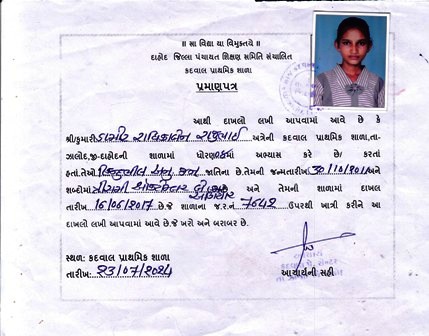 ॥ સા વિદ્યા યા વિમુક્તયે ॥
દાહોદ જિલ્લા પંચાયત શિક્ષણ સમિતિ સંચાલિત
કદવાલ પ્રાથમિક શાળા
પ્રમાણપત્ર
આથી દાખલો લખી આપવામાં આવે છે કે
શ્રી/કુમારી ડામોર રાધિકાબેન અત્રેની કદવાલ પ્રાથમિક શાળા,તા-
ઝાલોદ,જી-દાહોદની શાળામાં ધોરણ માં અભ્યાસ કરે છે/ કરતાં
હતાં.તેઓ હિન્દુ ભીલ જાતિના છે.તેમની જન્મતારીખ 30/10/201
શબ્દોમાં ત્રીસમી ઓક્ટોબર બે હજાર અને તેમની શાળામાં દાખલ
તારીખ 16/06/2017 છે.જે શાળાના જ.ર.નં 7642 ઉપરથી ખાત્રી કરીને આ
દાખલો લખી આપવામાં આવે છે.જે ખરો અને બરાબર છે.
સ્થળ: કદવાલ પ્રાથમિક શાળા
તારીખ: 23/07/2024
આચાર્યની સહી